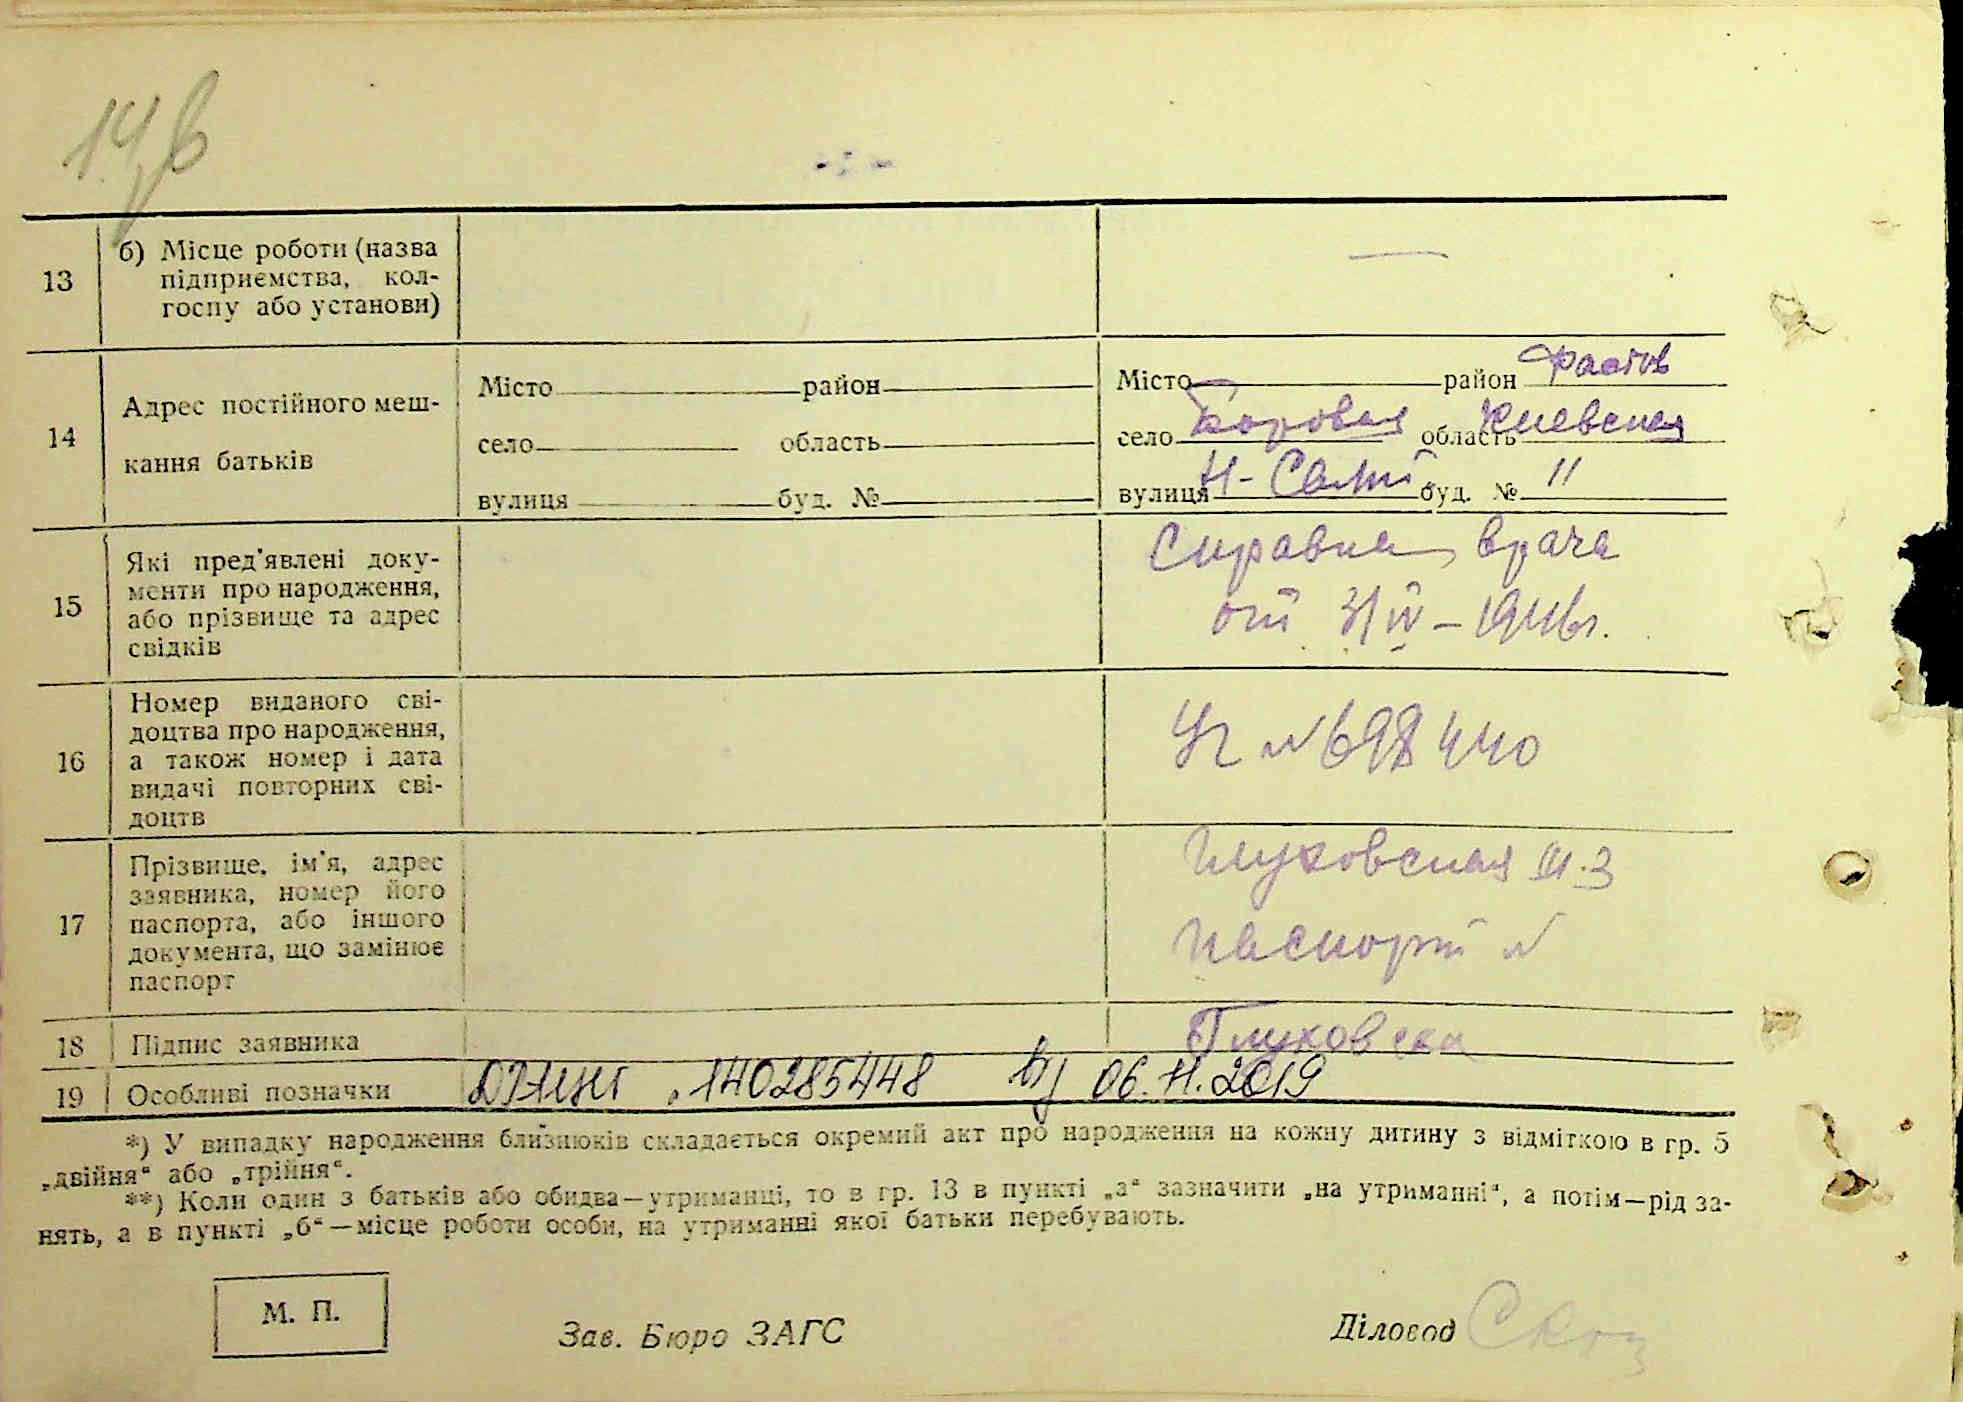 13 б) Місце роботи (назва
підприємства, кол-
госпу або установи) —
14 Адрес постійного меш-
кання батьків
Місто район
село область
вулиця буд. №
Місто район Фастов
село Боровая область Киевская
вулиця буд. № 11
15 Які пред'явлені доку-
менти про народження,
або прізвище та адрес
свідків
Справка врача
от 3/IV – 1946г.
16 Номер виданого сві-
доцтва про народження,
а також номер і дата
видачі повторних сві-
доцтв
№ 698440
17 Прізвище, ім'я, адрес
заявника, номер його
паспорта, або іншого
документа, що замінює
паспорт
Глуховская
паспорт №
18 Підпис заявника Глуховска
19 Особливі позначки 140285448 06.11.2019
*) У випадку народження близнюків складається окремий акт про народження на кожну дитину з відміткою в гр. 5
„двійня“ або „трійня“.
**) Коли один з батьків або обидва—утриманці, то в гр. 13 в пункті „а“ зазначити „на утриманні“, а потім—рід за-
нять, а в пункті „б“—місце роботи особи, на утриманні якої батьки перебувають.
М. П.
Зав. Бюро ЗАГС
Діловод